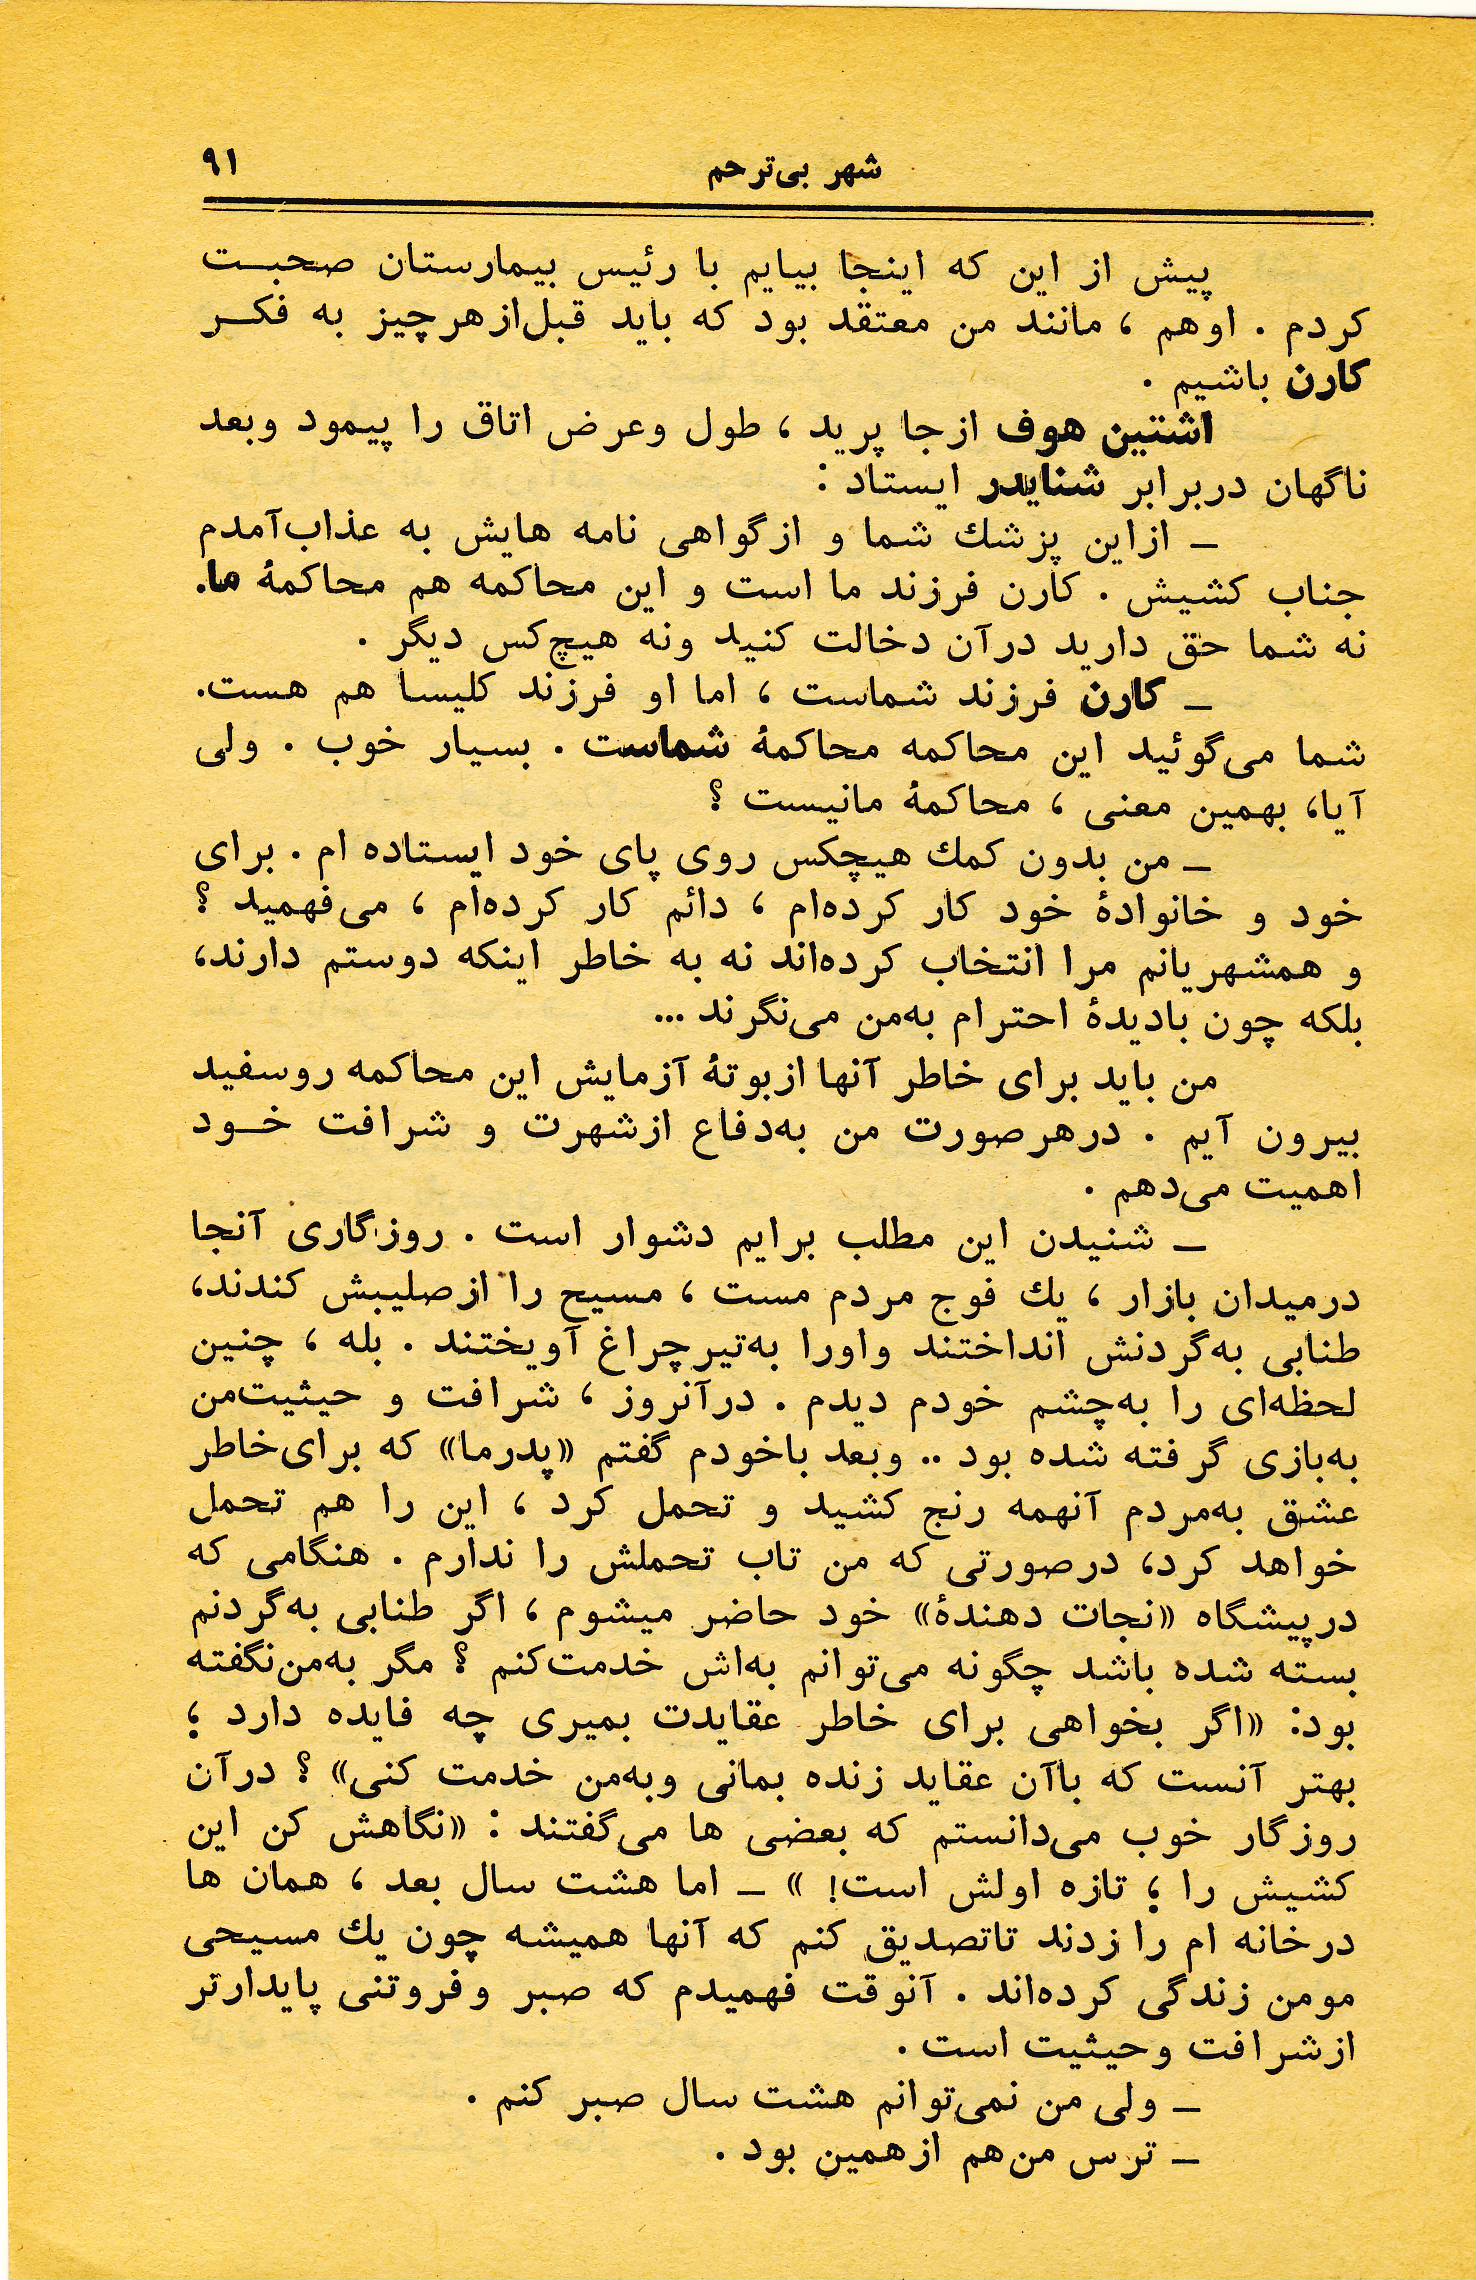 شهر بی‌ترحم ۹۱
پیش از این که اینجا بیایم با رئیس بیمارستان صحبت
کردم . اوهم ، مانند من معتقد بود که باید قبل‌ازهرچیز به فکر
کارن باشیم .
اشتین هوف ازجا پرید ، طول وعرض اتاق را پیمود وبعد
ناگهان دربرابر شنایدر ایستاد :
ــ ازاین پزشك شما و ازگواهی نامه هایش به عذاب‌آمدم
جناب کشیش . کارن فرزند ما است و این محاکمه هم محاکمهٔ ما.
نه شما حق دارید درآن دخالت کنید ونه هیچ‌کس دیگر .
ــ کارن فرزند شماست ، اما او فرزند کلیسا هم هست.
شما می‌گوئید این محاکمه محاکمهٔ شماست . بسیار خوب . ولی
آیا، بهمین معنی ، محاکمهٔ مانیست ؟
ــ من بدون کمك هیچکس روی پای خود ایستاده ام . برای
خود و خانوادهٔ خود کار کرده‌ام ، دائم کار کرده‌ام ، می‌فهمید ؟
و همشهریانم مرا انتخاب کرده‌اند نه به خاطر اینکه دوستم دارند،
بلکه چون بادیدهٔ احترام به‌من می‌نگرند ...
من باید برای خاطر آنها ازبوتهٔ آزمایش این محاکمه روسفید
بیرون آیم . درهرصورت من به‌دفاع ازشهرت و شرافت خود
اهمیت می‌دهم .
ــ شنیدن این مطلب برایم دشوار است . روزگاری آنجا
درمیدان بازار ، یك فوج مردم مست ، مسیح را ازصلیبش کندند،
طنابی به‌گردنش انداختند واورا به‌تیرچراغ آویختند . بله ، چنین
لحظه‌ای را به‌چشم خودم دیدم . درآنروز ، شرافت و حیثیت‌من
به‌بازی گرفته شده بود .. وبعد باخودم گفتم «پدرما» که برای‌خاطر
عشق به‌مردم آنهمه رنج کشید و تحمل کرد ، این را هم تحمل
خواهد کرد، درصورتی که من تاب تحملش را ندارم . هنگامی که
درپیشگاه «نجات دهندهٔ» خود حاضر میشوم ، اگر طنابی به‌گردنم
بسته شده باشد چگونه می‌توانم به‌اش خدمت‌کنم ؟ مگر به‌من‌نگفته
بود: «اگر بخواهی برای خاطر عقایدت بمیری چه فایده دارد ؛
بهتر آنست که باآن عقاید زنده بمانی وبه‌من خدمت کنی» ؟ درآن
روزگار خوب می‌دانستم که بعضی ها می‌گفتند : «نگاهش کن این
کشیش را ؛ تازه اولش است! » ــ اما هشت سال بعد ، همان ها
درخانه ام را زدند تاتصدیق کنم که آنها همیشه چون یك مسیحی
مومن زندگی کرده‌اند . آنوقت فهمیدم که صبر وفروتنی پایدارتر
ازشرافت وحیثیت است .
ــ ولی من نمی‌توانم هشت سال صبر کنم .
ــ ترس من‌هم ازهمین بود .